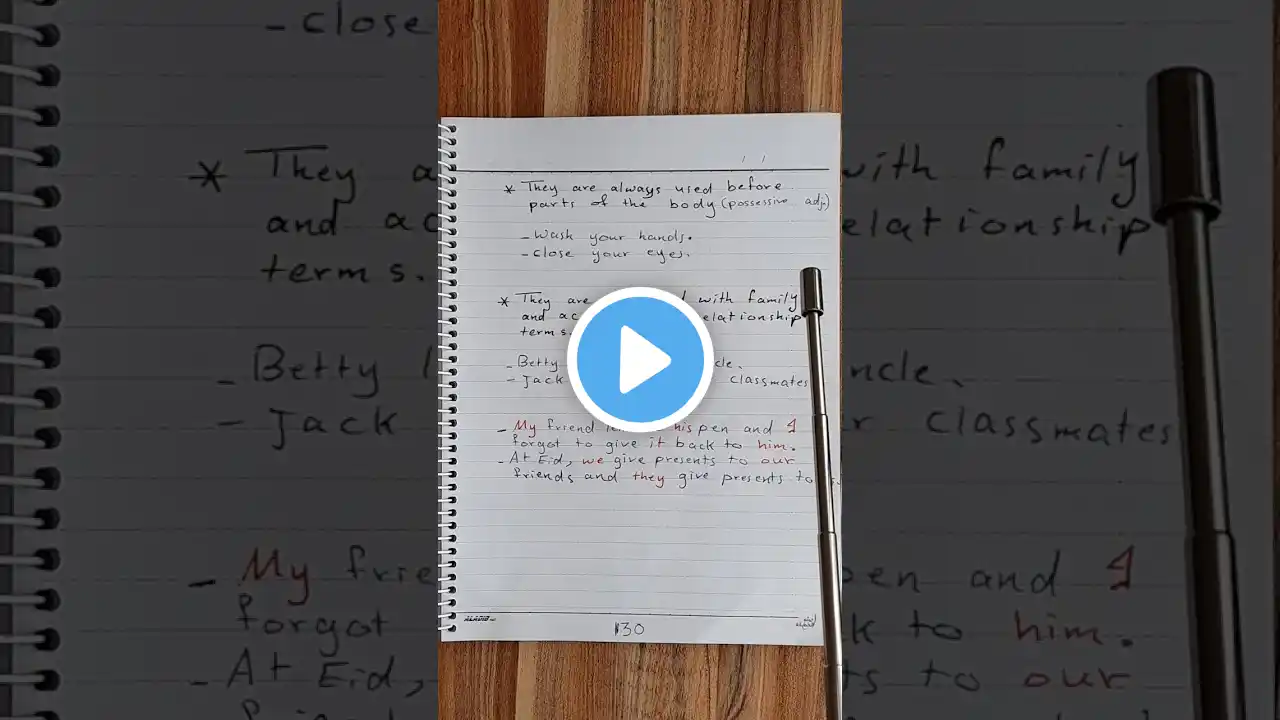 * They are always used before
parts of the body (possessive adj)
- Wash your hands.
- Close your eyes.
* They are with family
and ac elationship
terms.
- Betty cle.
- Jack classmates
- My friend his pen and I
forgot to give it back to him.
- At Eid, we give presents to our
friends and they give presents to
130